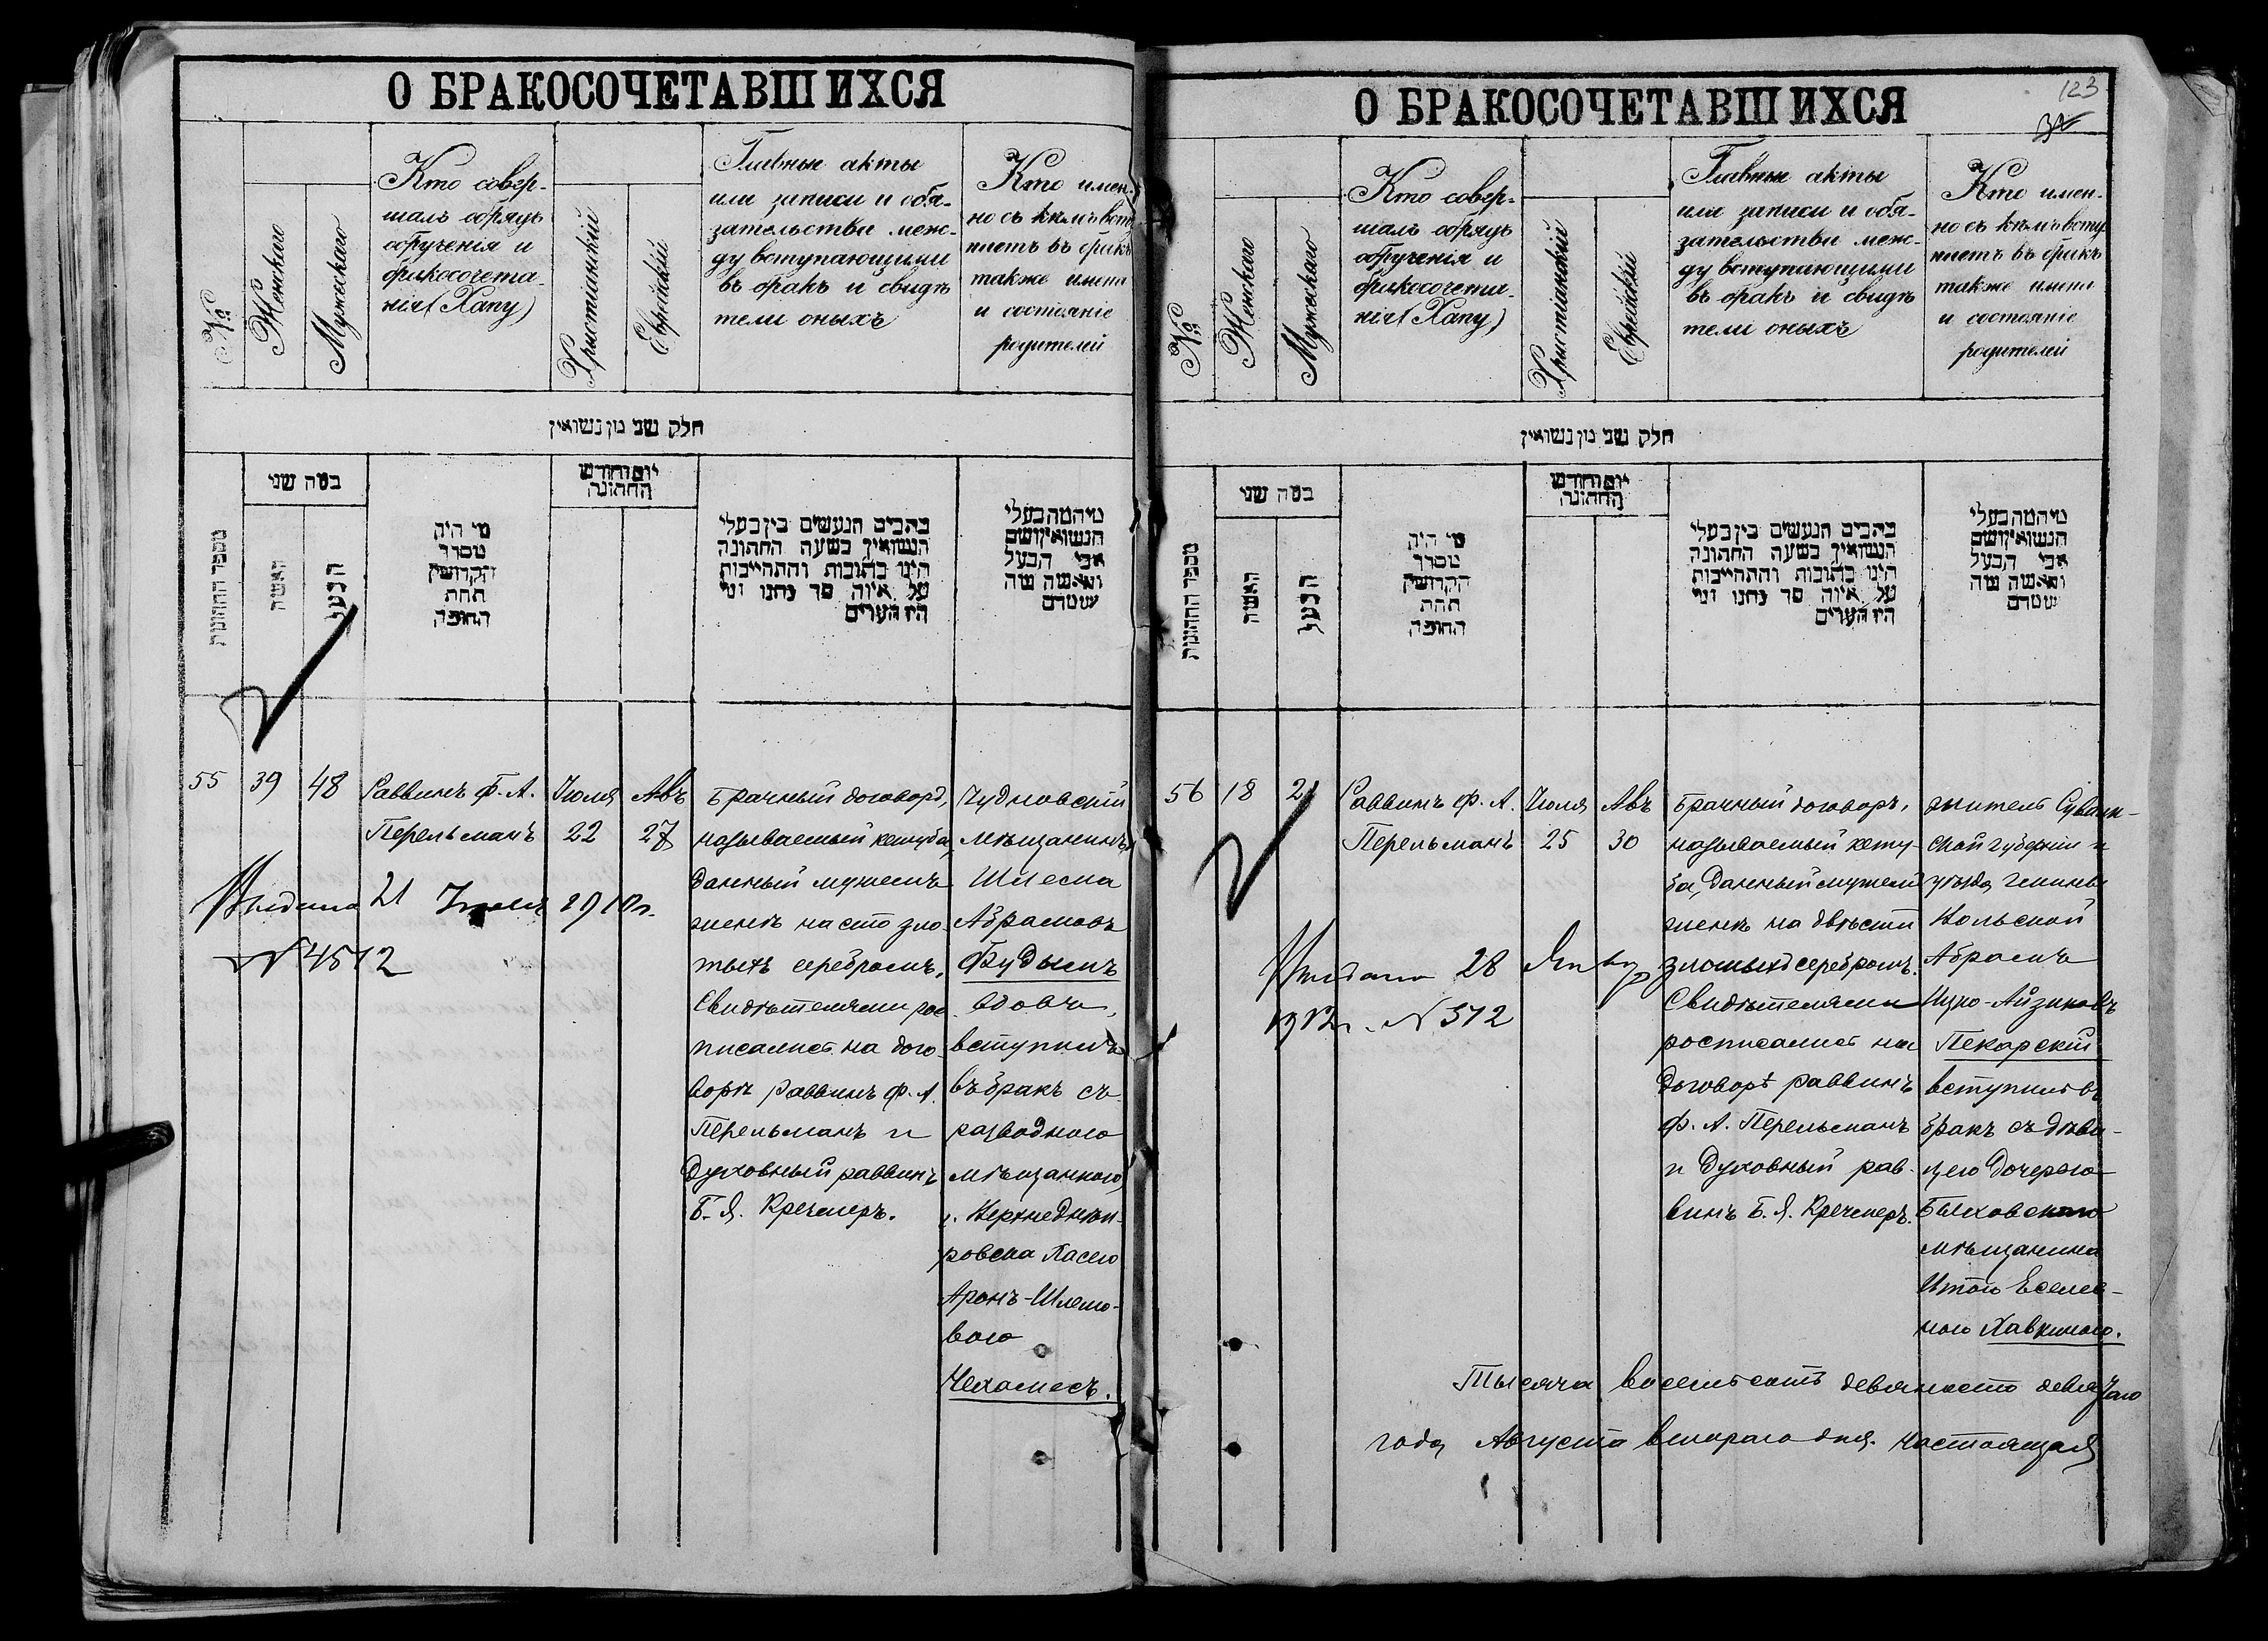 О БРАКОСОЧЕТАВШИХСЯ
№
Женскаго
Мужескаго
Кто совер-
шалъ обрядъ
обрученія и
бракосочета-
нія (Хапу)
Христіанскій
Еврейскій
Главные акты
или записи и обя-
зательства меж-
ду вступающими
въ бракъ и свидѣ
тели оныхъ
Кто имен-
но съ кѣмъ всту
паетъ въ бракъ
также имена
и состояніе
родителей
חלק שני מן נשואין
מספר החתונות
כמה שני
האשה
הבעל
מי היה
מסדר
הקדושין
תחת
החופה
יום וחודש
החתונה
כתבים הנעשים בין בעלי
הנשואין בשעה החתונה
היינו כתובות והתחייבות
55
39
48
Раввинъ Ф. А.
Перельманъ
Іюля
22
Авъ
27
Брачный договоръ,
называемый кетуба,
данный мужемъ
женѣ на сто зло-
тыхъ серебромъ.
Свидѣтелями рос-
писались на дого-
ворѣ раввинъ Ф. А.
Перельманъ и
Духовный раввинъ
Б. Я. Кречмеръ.
Чудновскій
мѣщанинъ
Шлема
Абрамовъ
Будымъ
вдовъ,
вступилъ
въ бракъ съ
разводною
мѣщанкою
г. Верхнеднѣп-
ровска Хасею
Аронъ-Шлемо-
вою
Нехамесъ.
Выдана 21 1910 г.
№ 4512
О БРАКОСОЧЕТАВШИХСЯ
123
№
Женскаго
Мужескаго
Кто совер-
шалъ обрядъ
обрученія и
бракосочета-
нія (Хапу)
Христіанскій
Еврейскій
Главные акты
или записи и обя-
зательства меж-
ду вступающими
въ бракъ и свидѣ
тели оныхъ
Кто имен-
но съ кѣмъ всту
паетъ въ бракъ
также имена
и состояніе
родителей
חלק שני מן נשואין
מספר החתונות
כמה שני
האשה
הבעל
מי היה
מסדר
הקדושין
תחת
החופה
יום וחודש
החתונה
כתבים הנעשים בין בעלי
הנשואין בשעה החתונה
היינו כתובות והתחייבות
56
18
21
Раввинъ Ф. А.
Перельманъ
Іюля
25
Авъ
30
Брачный договоръ,
называемый кету-
ба, данный мужемъ
женѣ на двѣсти
злотыхъ серебромъ.
Свидѣтелями
росписались на
договорѣ раввинъ
Ф. А. Перельманъ
и Духовный рав-
винъ Б. Я. Кречмеръ.
житель Сувалк-
ской губерніи и
уѣзда гмины
Вольской
Абрамъ
Ицко-Айзиковъ
Пекарскій
вступилъ въ
бракъ съ дѣви-
цею дочерью
Быховскаго
мѣщанина
Итою Еселев-
ною Хавкиною.
Выдана 28 Янв
1912 г. № 512
Тысяча восемьсотъ девяносто девятаго
года Августа втораго дня. настоящая